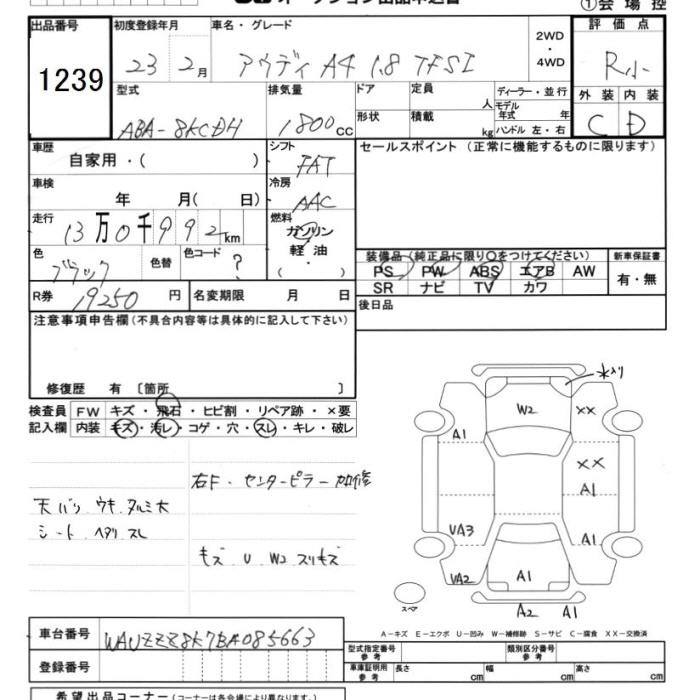 ①会場控
出品番号 初度登録年月 車名・グレード 2WD ・ 4WD 評価点
1239 23 2月 アウディ A4 1.8 TFSI R小
型式 排気量 ドア 定員 人 ディーラー・並行 外装 内装
ABA-8KCDH 1800cc 形状 積載 kg モデル年式 年 ハンドル 左・右 C D
車歴 自家用・( ) シフト FAT セールスポイント (正常に機能するものに限ります)
車検 年 月( 日) 冷房 AAC
走行 13万0千992km 燃料 ガソリン 軽油 ・ ( )
色 ブラック 色替 色コード ? 装備品(純正品に限り○をつけてください) 新車保証書
PS PW ABS エアB AW 有・無
SR ナビ TV カワ
R券 19250円 名変期限 月 日 後日品
注意事項申告欄(不具合内容等は具体的に記入して下さい)
修復歴 有 〔箇所 〕
検査員 FW キズ・飛石・ヒビ割・リペア跡・×要
記入欄 内装 キズ・汚レ・コゲ・穴・スレ・キレ・破レ
右F・センターピラー加修
天バリ ウキ タルミ大
シート ヘタリ スレ
キズ U W2 スリキズ
W2 XX
A1 XX
A1
VA3 A1
VA2 A1
スペア A2 A1
A-キズ E-エクボ U-凹み W-補修跡 S-サビ C-腐食 XX-交換済
車台番号 WAUZZZ8K7BA085663
型式指定番号 参考 類別区分番号 参考
登録番号 車庫証明用 参考 長さ cm 幅 cm 高さ cm
希望出品コーナー(コーナーは各会場により異なります。)